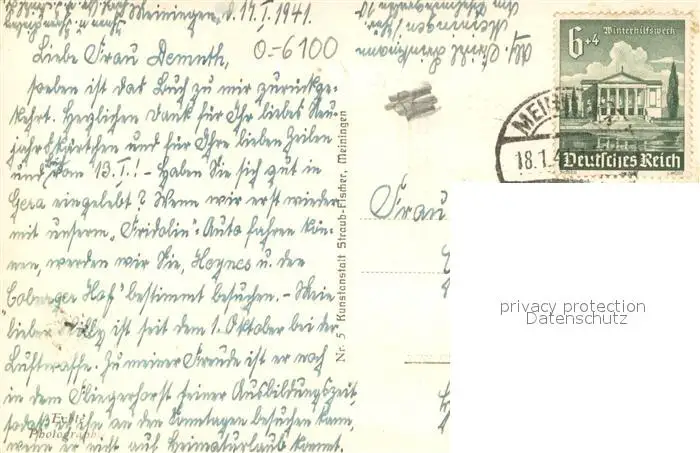 Meiningen, d. 17.I.1941.
0.-6100
Liebe Frau Demuth,
soeben ist das Buch zu mir zurückge-
kehrt. Herzlichen Dank für Ihr liebes Neu-
jahrskärtchen und für Ihre lieben Zeilen
und vom 13.I.! - Haben Sie sich gut in
Gera eingelebt? Wenn wir erst wieder
mit unserm "Fridolin"-Auto fahren kön-
nen, werden wir Sie, Heynes u. den
"Coburger Hof" bestimmt besuchen. - Mein
lieber Willy ist seit dem 1. Oktober bei der
Luftwaffe. Zu meiner Freude ist er noch
in dem Fliegerhorst seiner Ausbildungszeit,
sodaß ich ihn an den Sonntagen besuchen kann,
wenn er nicht auf Heimaturlaub kommt.
Echte
Photographie
Nr. 5 Kunstanstalt Straub-Fischer, Meiningen
Meiningen
Winterhilfswerk
6+4
Deutsches Reich
MEI
18.1.4
Frau
privacy protection
Datenschutz